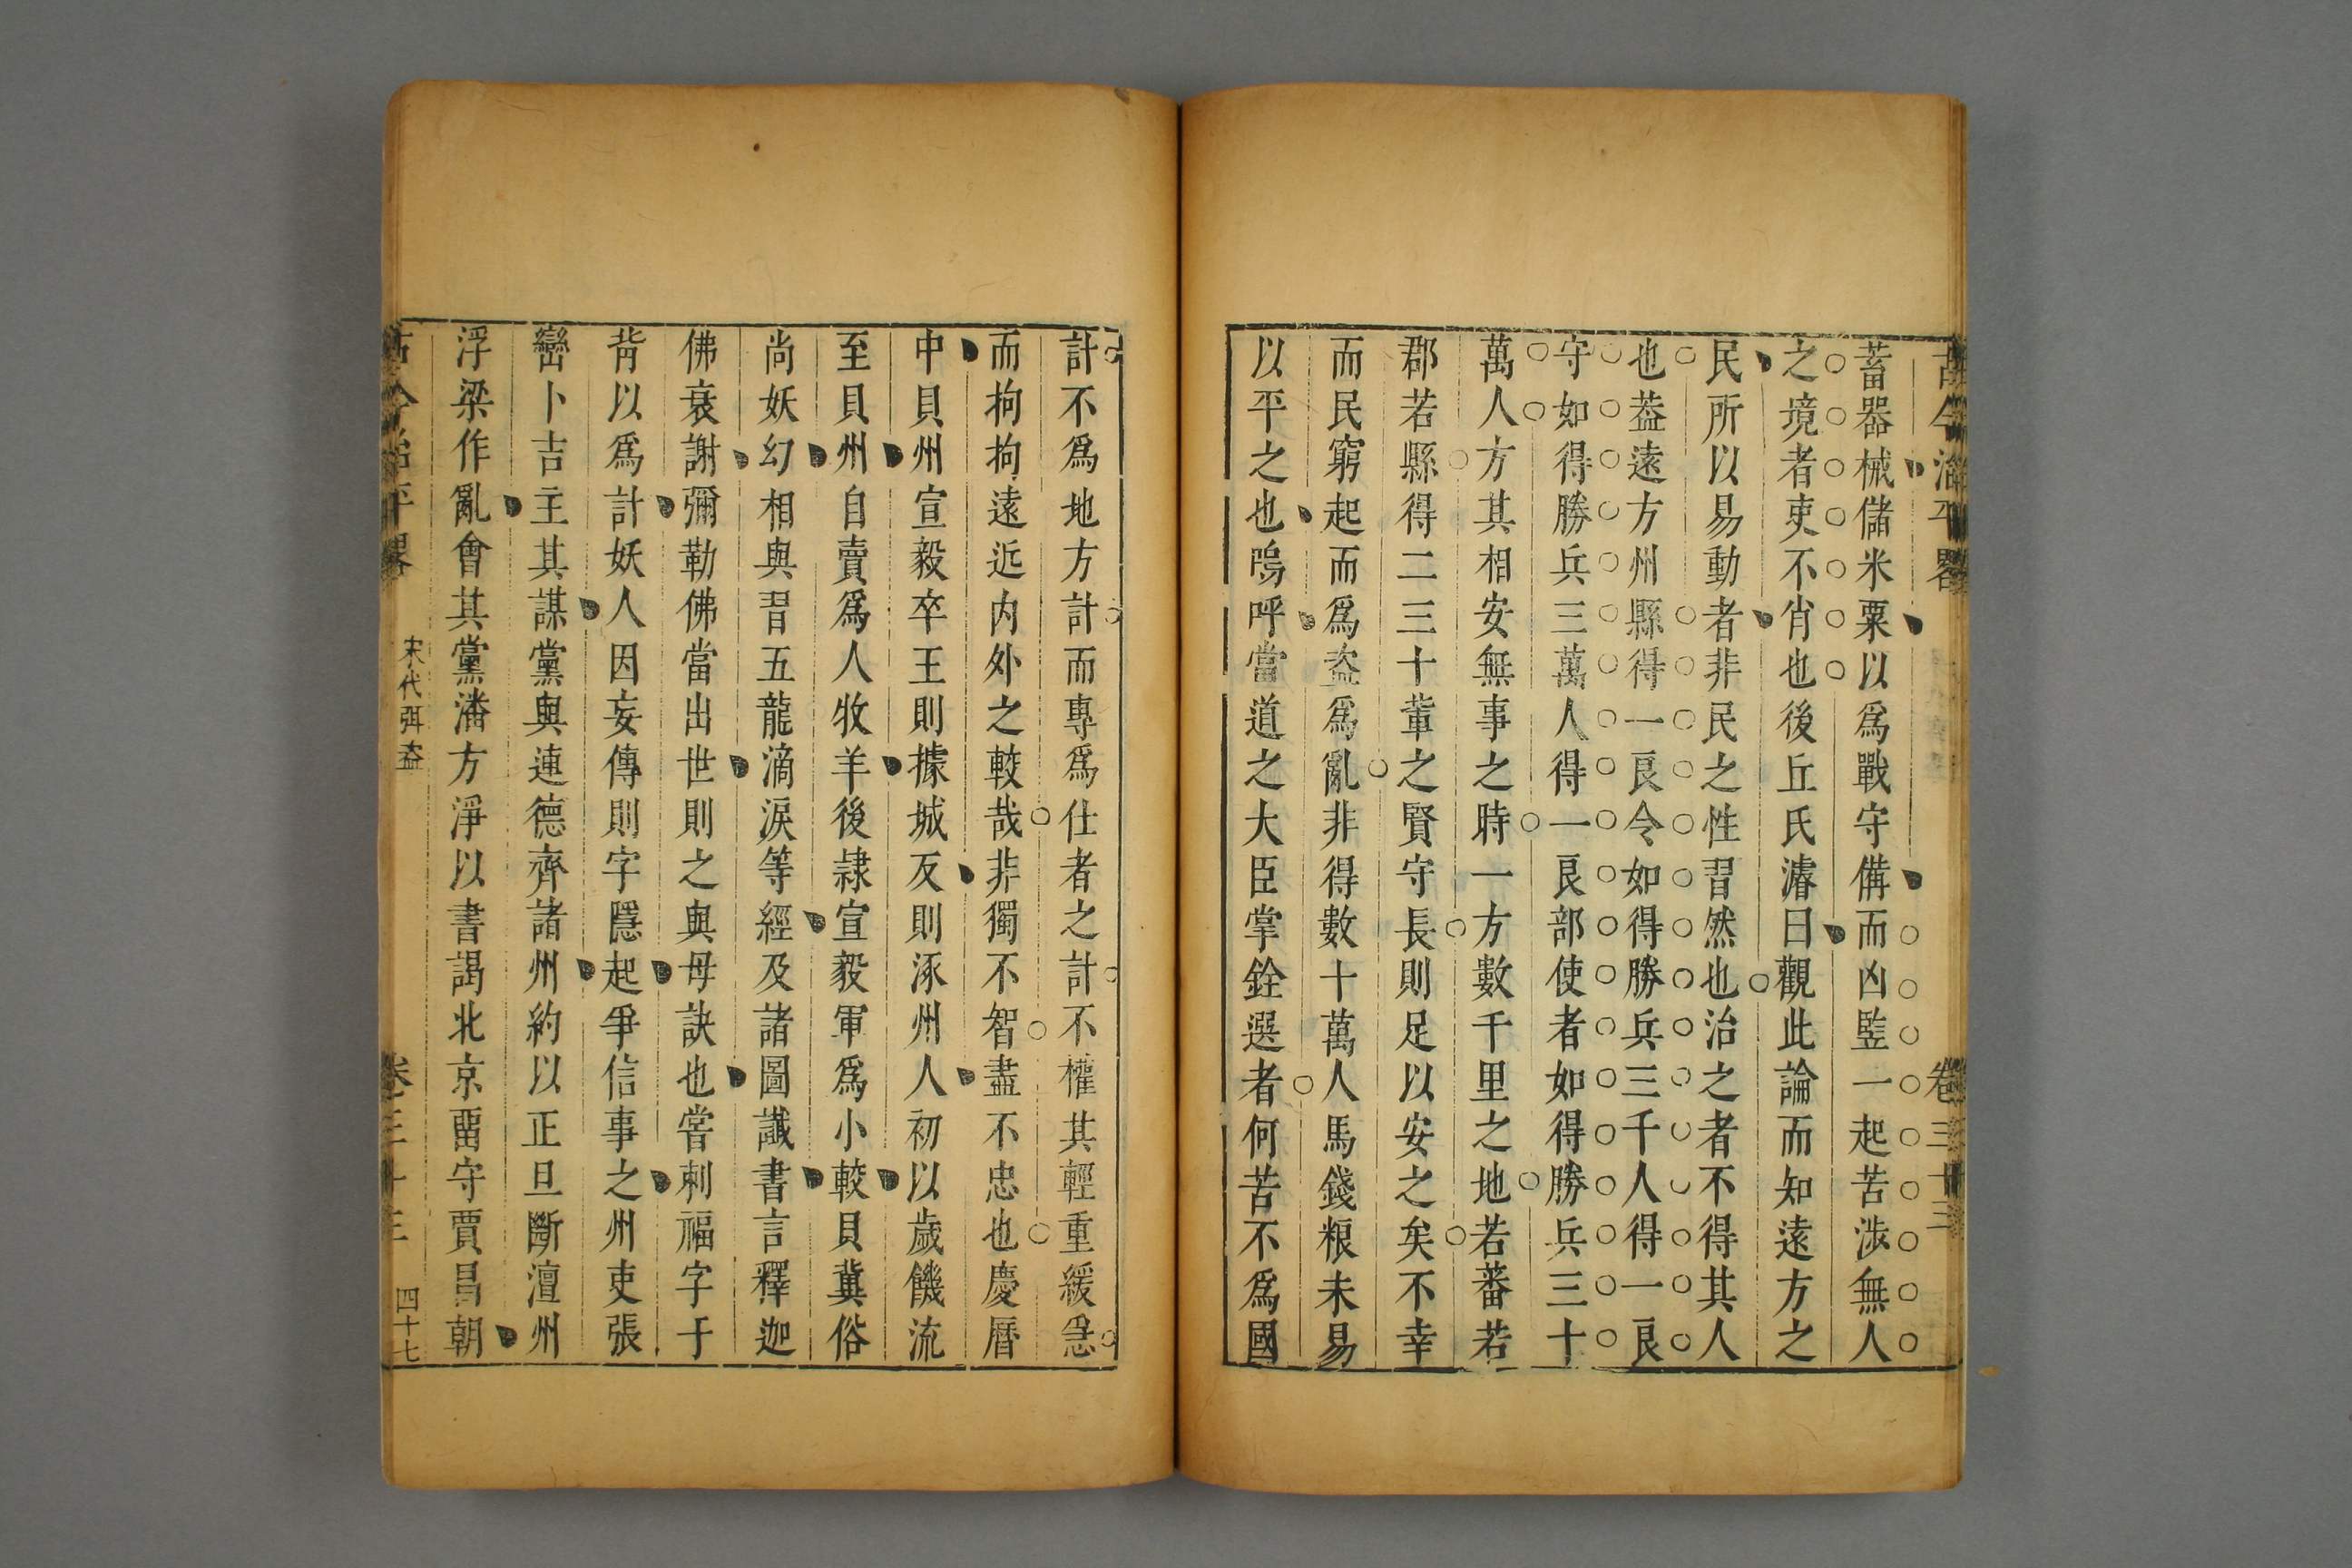 古今治平畧 卷三十三
蓄器械儲米粟以爲戰守備而凶監一起苦渉無人
之境者吏不肖也後丘氏濬曰觀此論而知遠方之
民所以易動者非民之性習然也治之者不得其人
也葢遠方州縣得一良令如得勝兵三千人得一良
守如得勝兵三萬人得一良部使者如得勝兵三十
萬人方其相安無事之時一方數千里之地若蕃若
郡若縣得二三十軰之賢守長則足以安之矣不幸
而民窮起而爲盗爲亂非得數十萬人馬錢粮未易
以平之也嗚呼當道之大臣掌銓選者何苦不爲國
計不爲地方計而專爲仕者之計不權其輕重緩急
而拘拘遠近内外之較哉非獨不智盡不忠也慶曆
中貝州宣毅卒王則據城反則涿州人初以歲饑流
至貝州自賣爲人牧羊後隷宣毅軍爲小較貝冀俗
尚妖幻相與習五龍滴淚等經及諸圖讖書言釋迦
佛衰謝彌勒佛當出世則之與母訣也嘗刺福字于
背以爲計妖人因妄傳則字隱起爭信事之州吏張
巒卜吉主其謀黨與連德齊諸州約以正旦斷澶州
浮梁作亂會其黨潘方淨以書謁北京畱守賈昌朝
古今治平畧 宋代弭盗 卷三十三 四十七